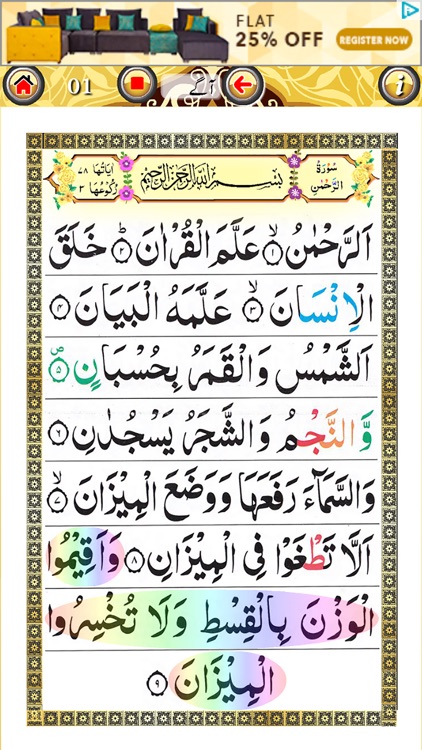 FLAT
25% OFF
REGISTER NOW
01
آگے
i
سُوْرَةُ الرَّحْمٰنِ
بِسْمِ اللّٰهِ الرَّحْمٰنِ الرَّحِيْمِ
اٰيَاتُهَا ٧٨
رُكُوْعُهَا ٣
اَلرَّحْمٰنُ ۙ﴿١﴾ عَلَّمَ الْقُرْاٰنَ ؕ﴿٢﴾ خَلَقَ
الْاِنْسَانَ ۙ﴿٣﴾ عَلَّمَهُ الْبَيَانَ ﴿٤﴾
اَلشَّمْسُ وَالْقَمَرُ بِحُسْبَانٍ ۪ص﴿٥﴾
وَّالنَّجْمُ وَالشَّجَرُ يَسْجُدٰنِ ﴿٦﴾
وَالسَّمَآءَ رَفَعَهَا وَوَضَعَ الْمِيْزَانَ ۙ﴿٧﴾
اَلَّا تَطْغَوْا فِى الْمِيْزَانِ ﴿٨﴾ وَاَقِيْمُوا
الْوَزْنَ بِالْقِسْطِ وَلَا تُخْسِرُوا
الْمِيْزَانَ ﴿٩﴾